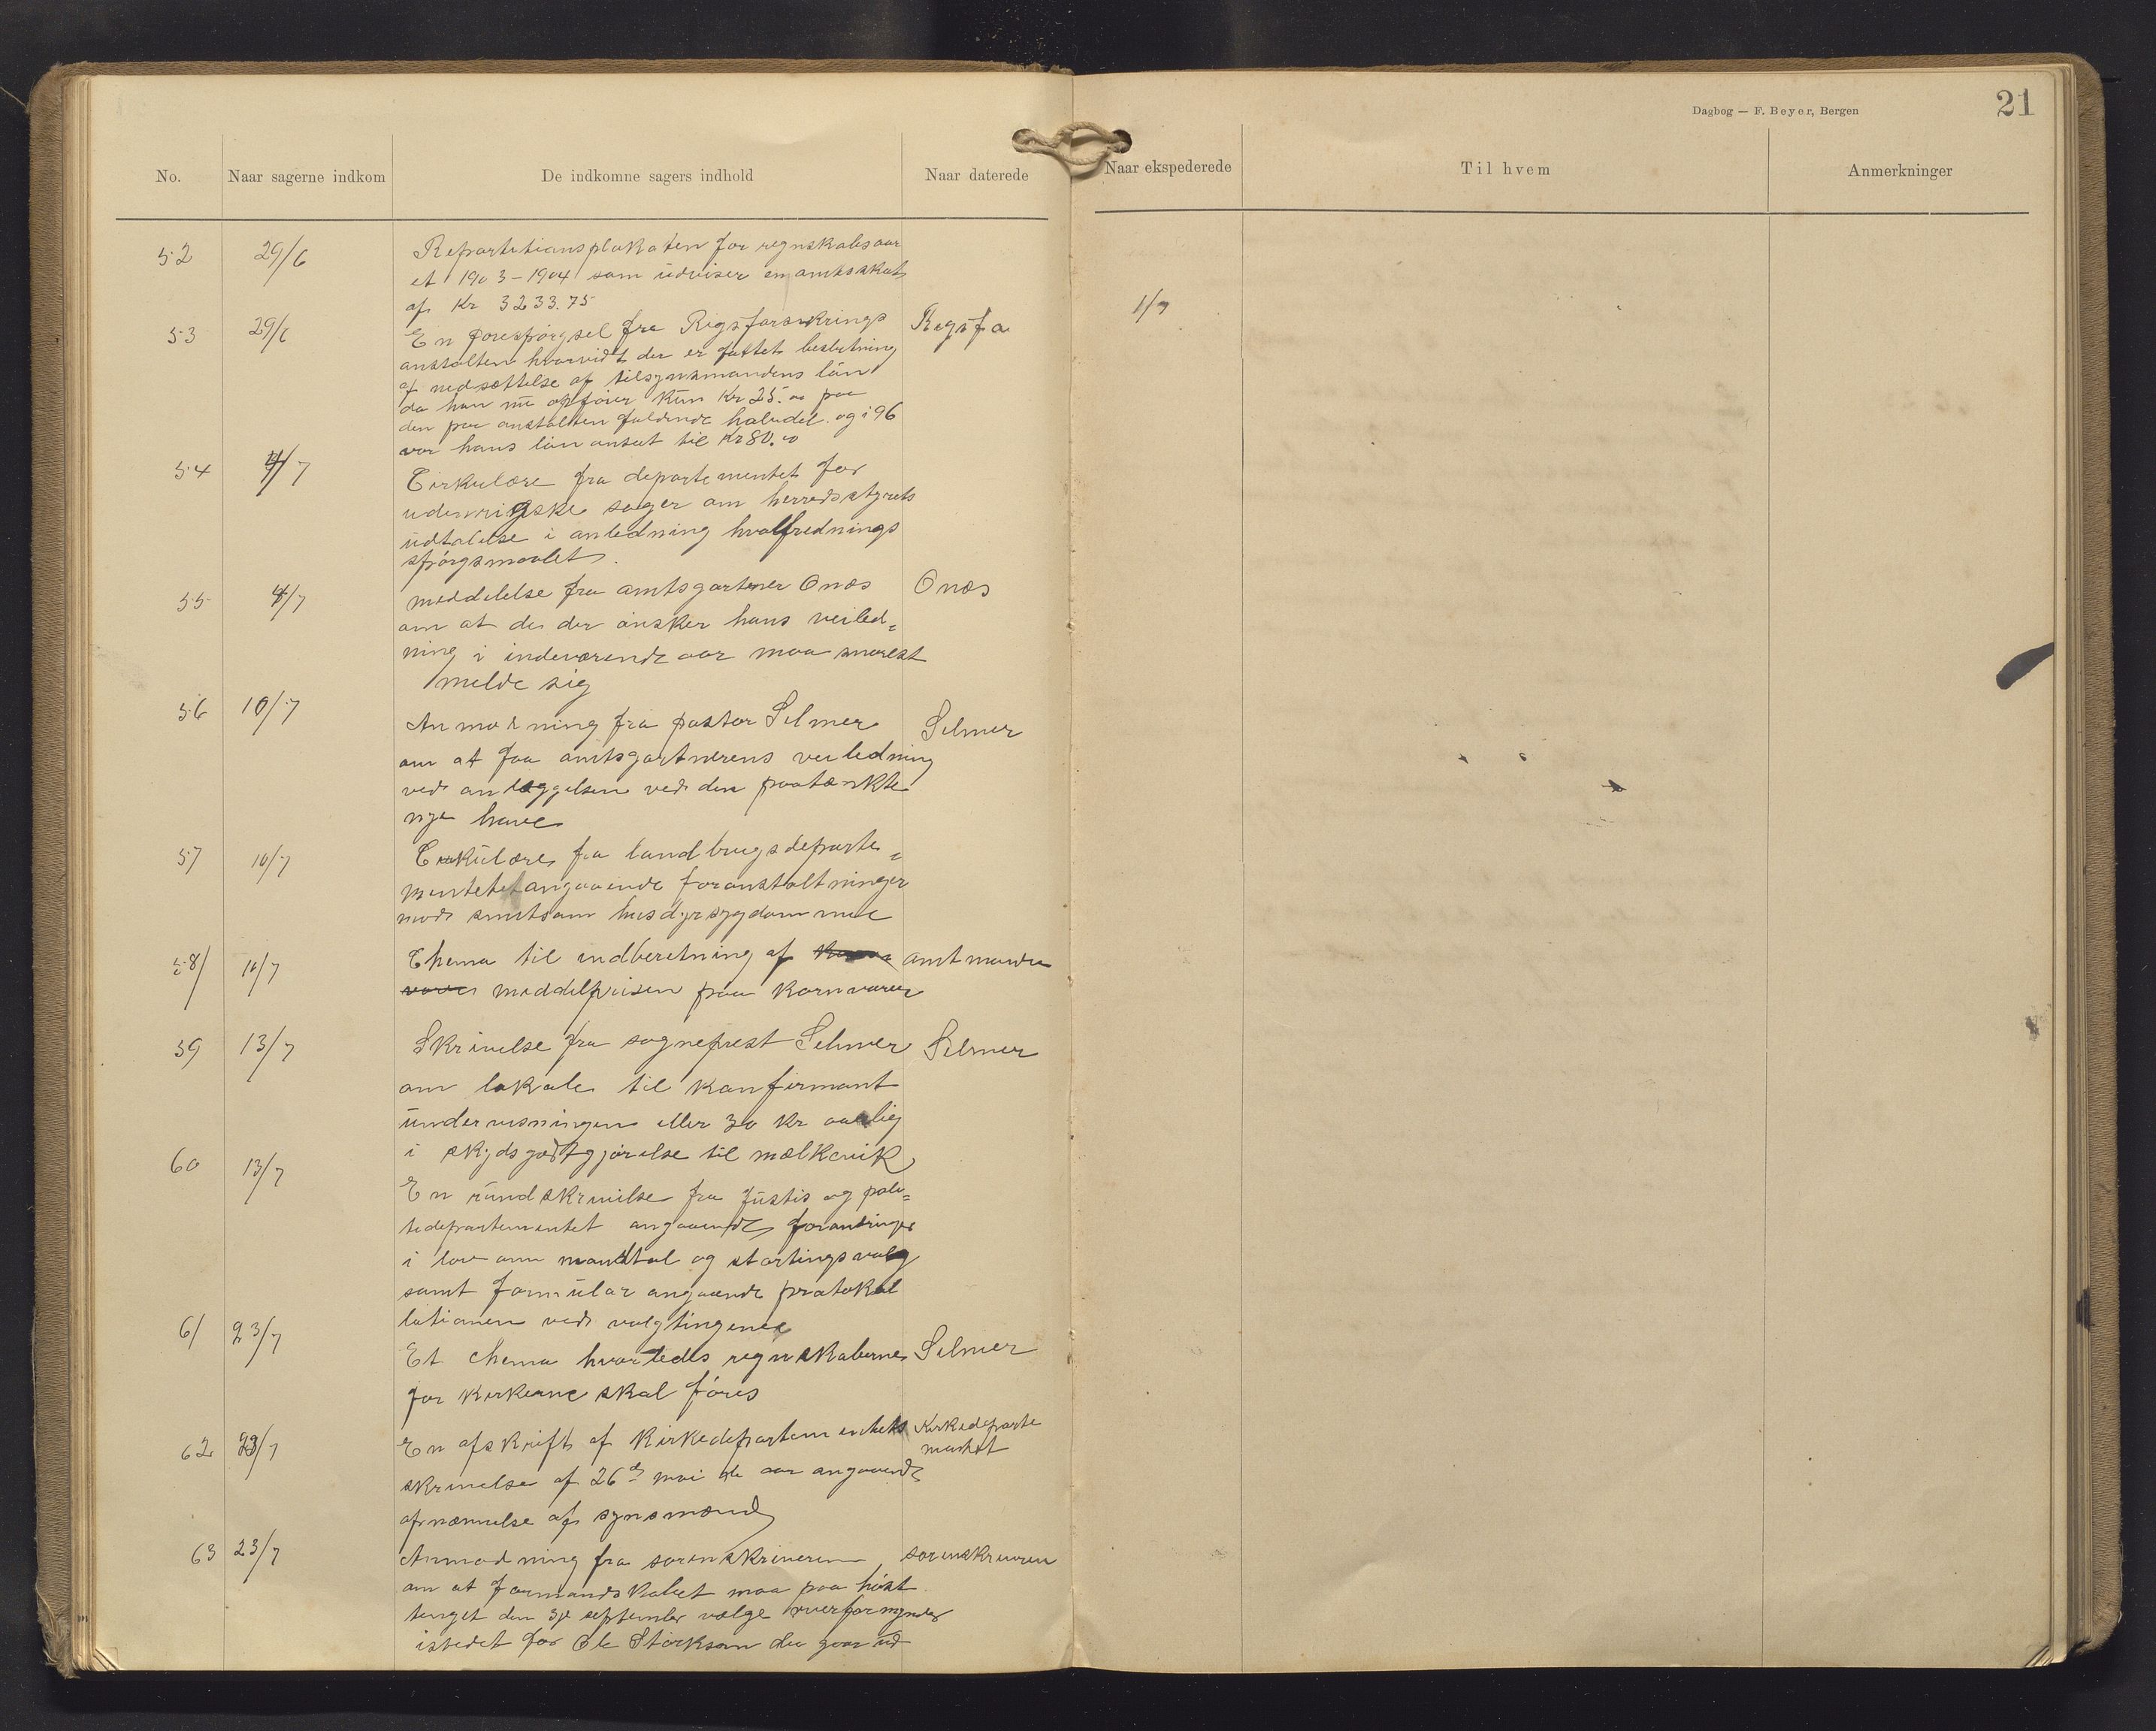 Dagbog — F. Beyer, Bergen
21
No. Naar sagerne indkom De indkomne sagers indhold Naar daterede Naar ekspederede Til hvem Anmerkninger
52 29/6 Repartitiansplakaten for regnskabsaar
et 1903-1904 som udviser en amtsskat
af Kr 3233.75
1/7
53 29/6 En forespørgsel fra Rigsforsikrings Regsfa
anstalten hvorvidt der er fattet beslutning
af nedsættelse af tilsynsmandens løn
da han nu opfører kun Kr 25.00 paa
den paa anstalten faldende halvdel. og i 96
var hans løn ansat til Kr 80.00
54 4/7 Cirkulære fra departementet for
udenrigske sager om herredsstyrets
udtalelse i anledning hvalfrednings
spørgsmaalet.
55 4/7 meddelelse fra amtsgartner Onæs Onæs
om at de der ønsker hans veiled=
ning i indeværende aar maa snarest
melde sig
56 10/7 Anmodning fra pastor Selmer Selmer
om at faa amtsgartnerens veiledning
ved anlæggelsen ved den paatænkte
nye have
57 10/7 Cirkulære fra landbrugsdeparte=
mentet angaaende foranstaltninger
mod smitsom husdyrsygdomme
58 10/7 Chema til indberetning af amtmanden
middelprisen paa kornvarer
59 13/7 Skrivelse fra sogneprest Selmer Selmer
om lokale til konfirmant
undervisningen eller 30 kr aarlig
i skydsgodtgjørelse til mælkevik
60 13/7 En rundskrivelse fra Justis og poli=
tidepartementet angaaende forandringer
i lov om mandtal og stortingsvalg
samt formular angaaende protokol
lationen ved valgtingene
61 23/7 Et chema hvorledes regnskaberne Selmer
for kirkerne skal føres
62 23/7 En afskrift af Kirkedepartementets Kirkedeparte
mentet
skrivelse af 26de mai de aar angaaende
afnævnelse af synsmænd
63 23/7 Anmodning fra sorenskriveren sorenskriveren
om at formandskabet maa paa høst
tinget den 3je september vælge overformynder
istedet for Ole Storksen der gaar ud